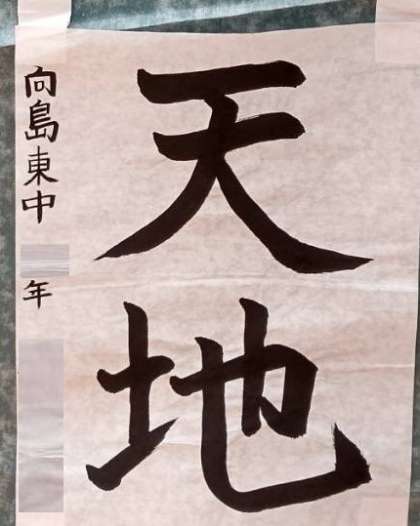 天地
向島東中
年